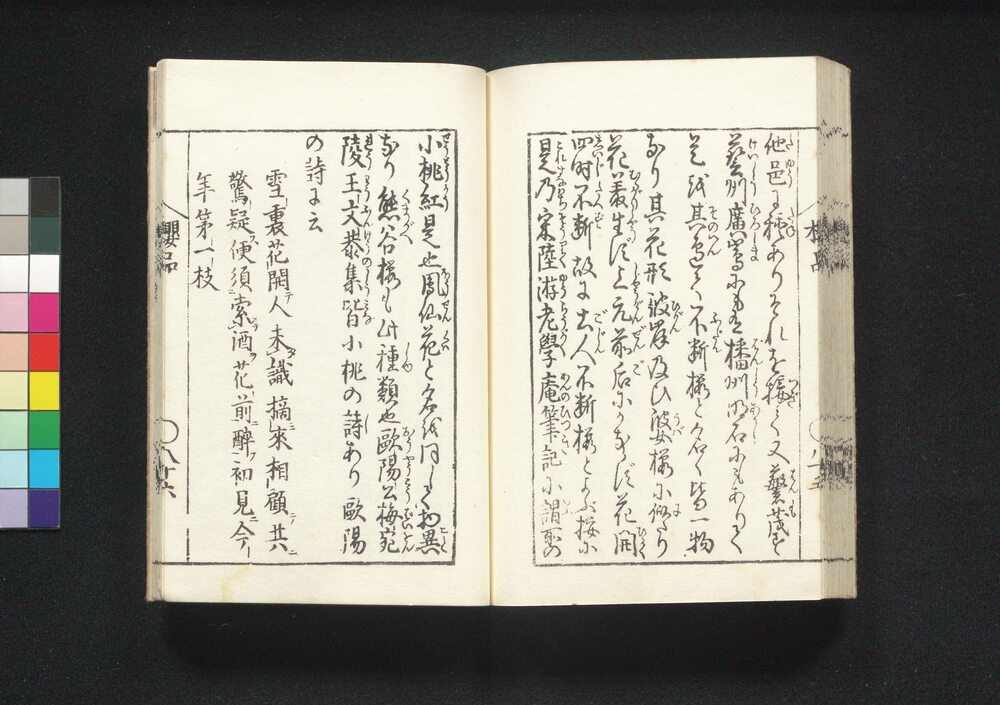 他邑に種ありそれを接く又蕃茂す
藝州廣嶌にも又播州明石にもありて
是武其〻不断櫻と名く皆一物
なり其花形彼岸及ひ婆櫻に似たり
花叢生す上元前后にかならす花開
四時不断故に古人不断櫻とよふ按に
是乃宋陸游老學庵筆記に謂所の
小桃紅是也周仙花と名は同して物異
なり熊谷櫻も此種類也歐陽公梅宛
陵王文恭集皆小桃の詩あり歐陽
の詩に云
雪裏花開人未識摘來相顧共
驚疑便須索酒花前醉初見今
年第一枝
櫻品
八廿六
櫻品